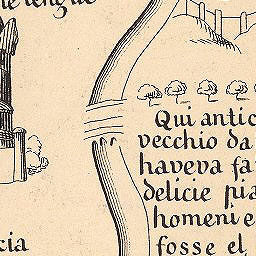 Qui antic
vecchio da
haveva fa
delicie pia
homeni e
fosse el
cia